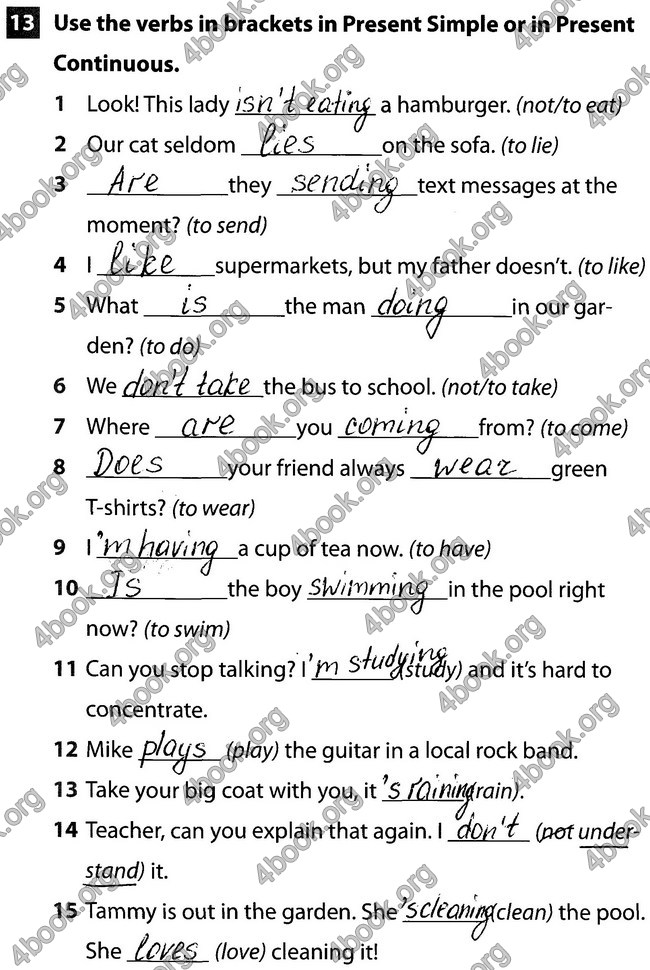 13 Use the verbs in brackets in Present Simple or in Present
Continuous.
1 Look! This lady isn't eating a hamburger. (not/to eat)
2 Our cat seldom lies on the sofa. (to lie)
3 Are they sending text messages at the
moment? (to send)
4 I like supermarkets, but my father doesn't. (to like)
5 What is the man doing in our gar-
den? (to do)
6 We don't take the bus to school. (not/to take)
7 Where are you coming from? (to come)
8 Does your friend always wear green
T-shirts? (to wear)
9 I 'm having a cup of tea now. (to have)
10 Is the boy swimming in the pool right
now? (to swim)
11 Can you stop talking? I 'm studying (study) and it's hard to
concentrate.
12 Mike plays (play) the guitar in a local rock band.
13 Take your big coat with you, it 's raining rain).
14 Teacher, can you explain that again. I don't (not under-
stand) it.
15 Tammy is out in the garden. She 's cleaning (clean) the pool.
She loves (love) cleaning it!
4book.org